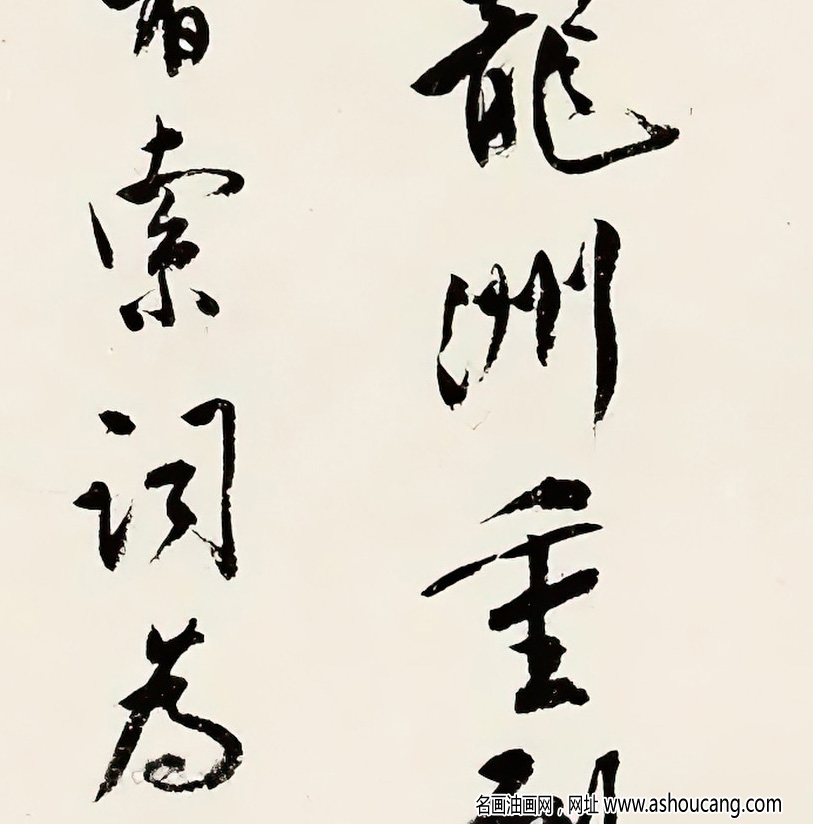 龍洲重到
有索詞為
名画油画网，网址 www.ashoucang.com